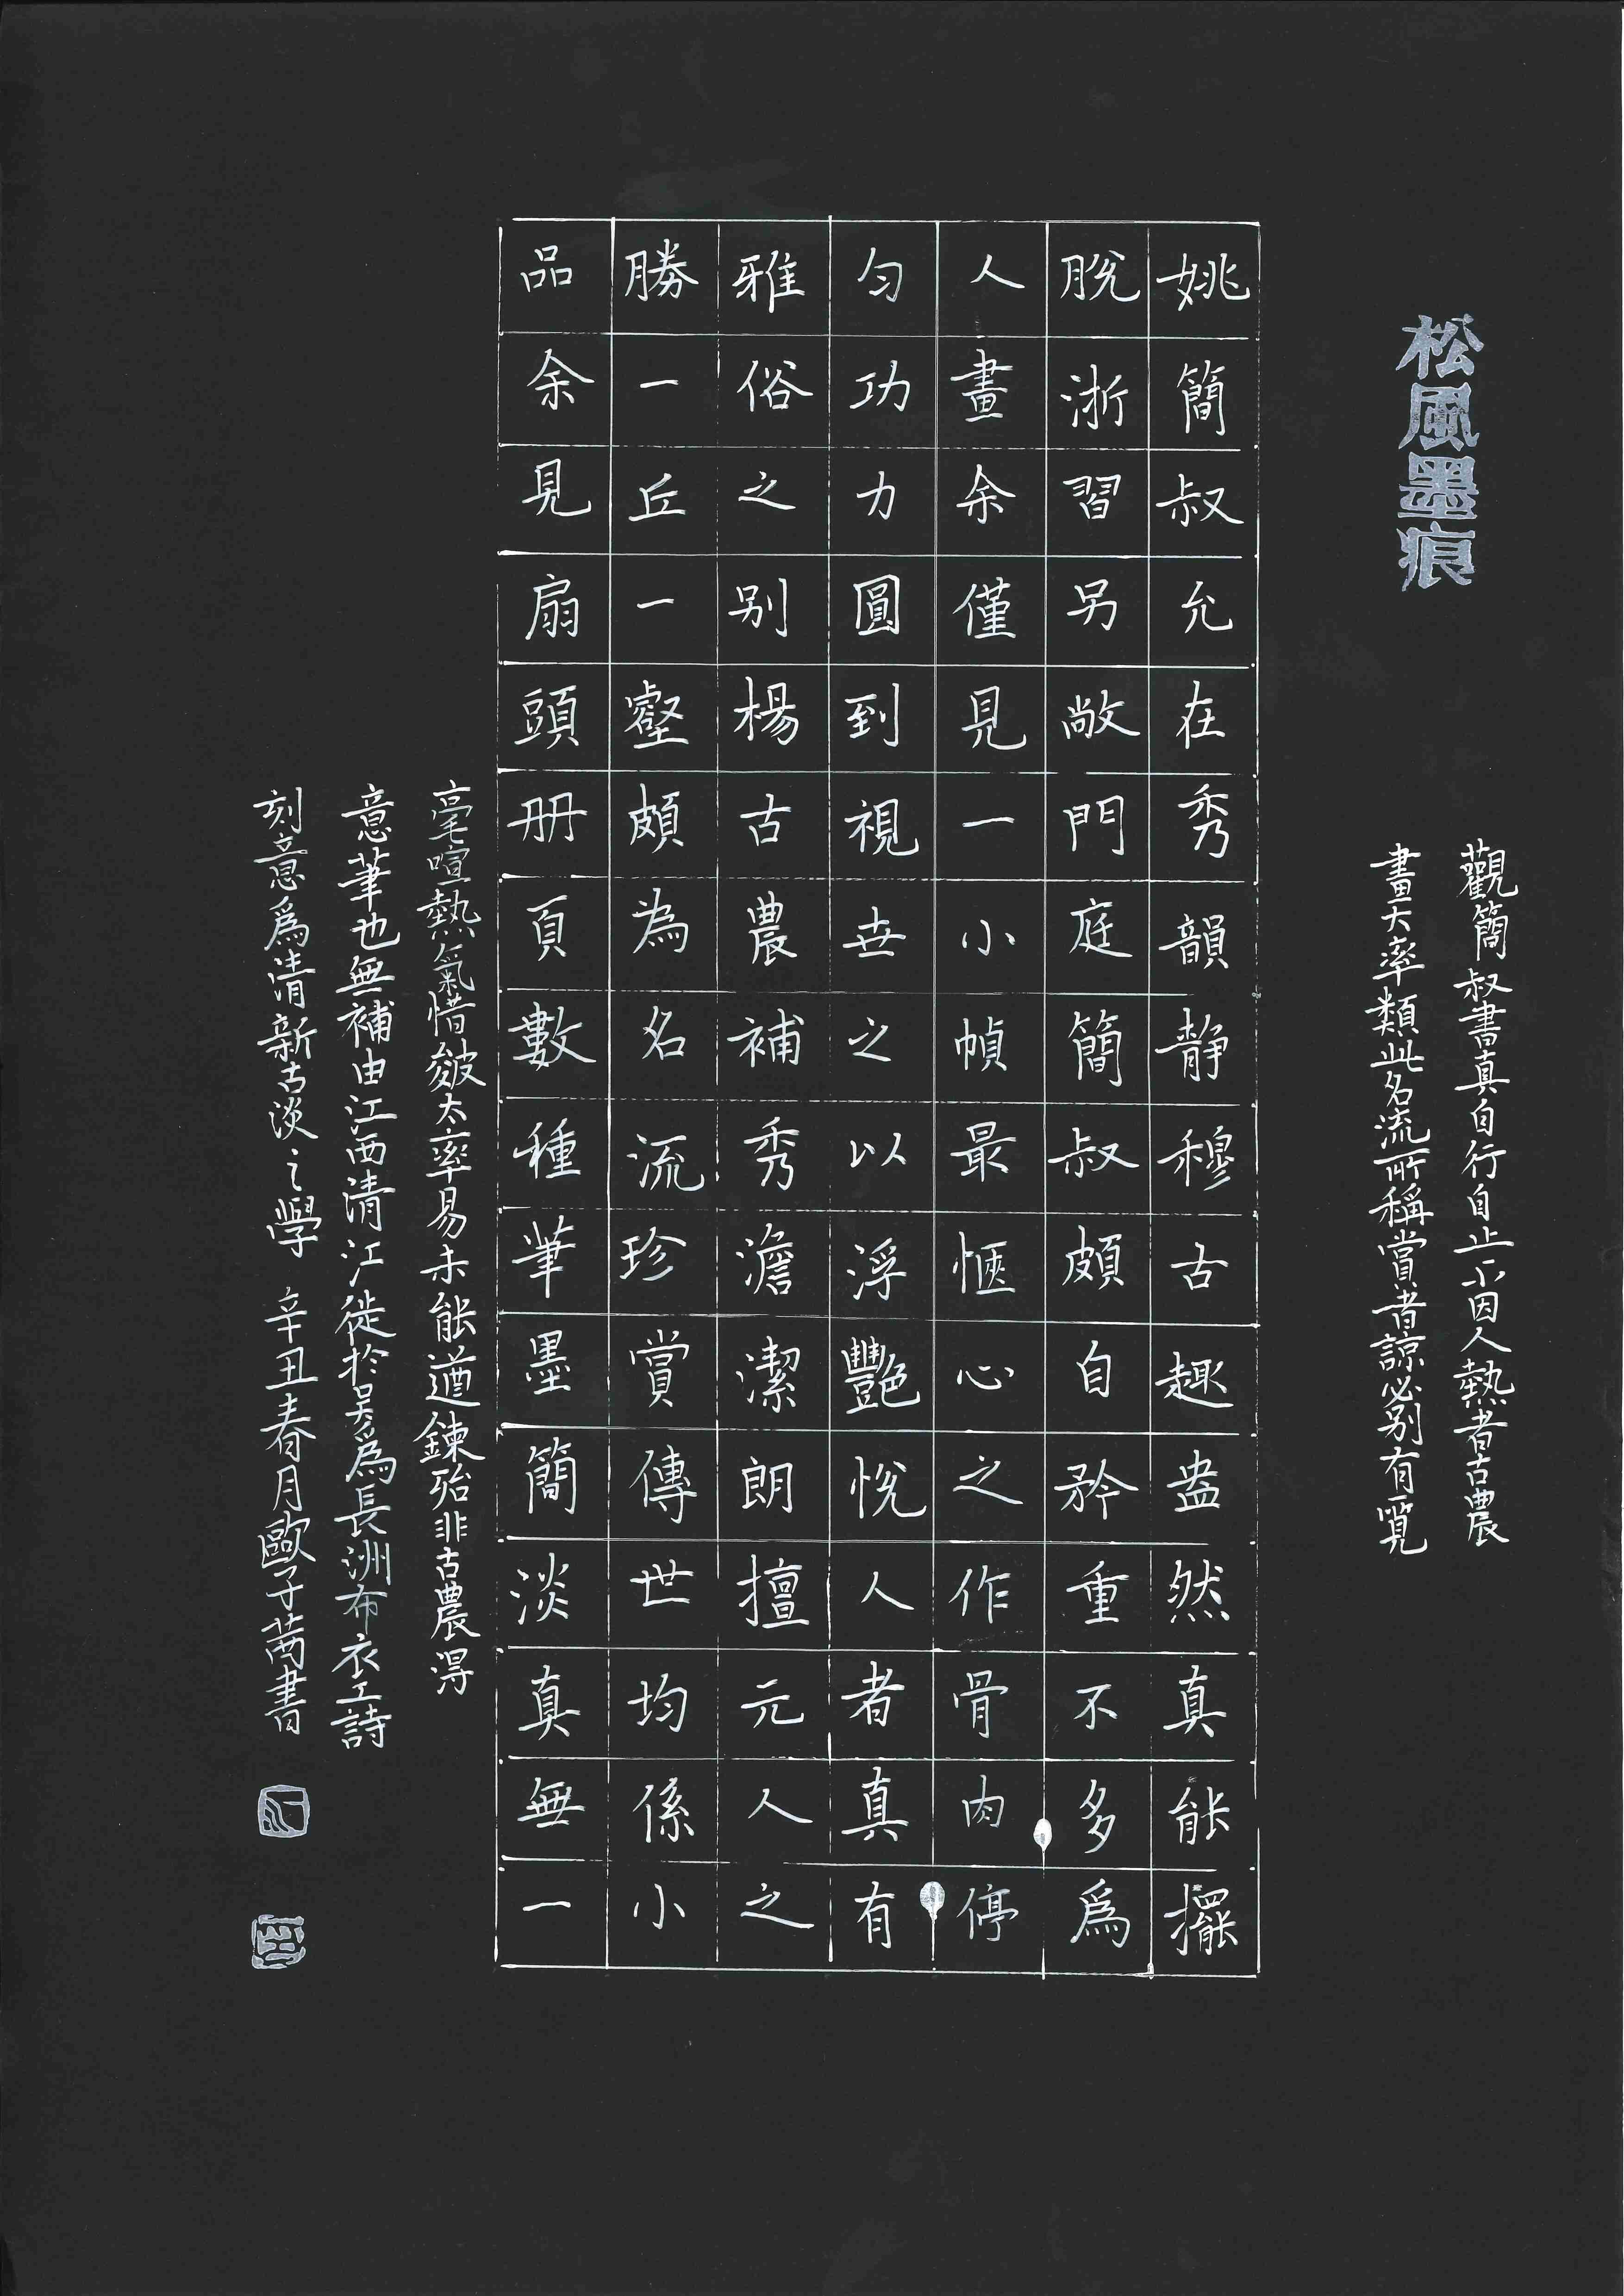 松風墨痕
觀簡叔書真自行自止不因人熱者古農
畫大率類此名流所稱賞者諒必別有一寬
姚簡叔允在秀韻静穆古趣盎然真能擺
脫浙習另敞門庭簡叔頗自矜重不多為
人畫余僅見一小幀最愜心之作骨肉停
匀功力圓到視世之以浮艷悅人者真有
雅俗之別楊古農補秀澹潔朗擅元人之
勝一丘一壑頗為名流珍賞傳世均係小
品余見扇頭册頁數種筆墨簡淡真無一
毫喧熱氣惜皴太率易未能遒鍊殆非古農淂
意筆也無補由江西清江徙於吳為長洲布衣工詩
刻意為清新古淡之學 辛丑春月歐子茜書